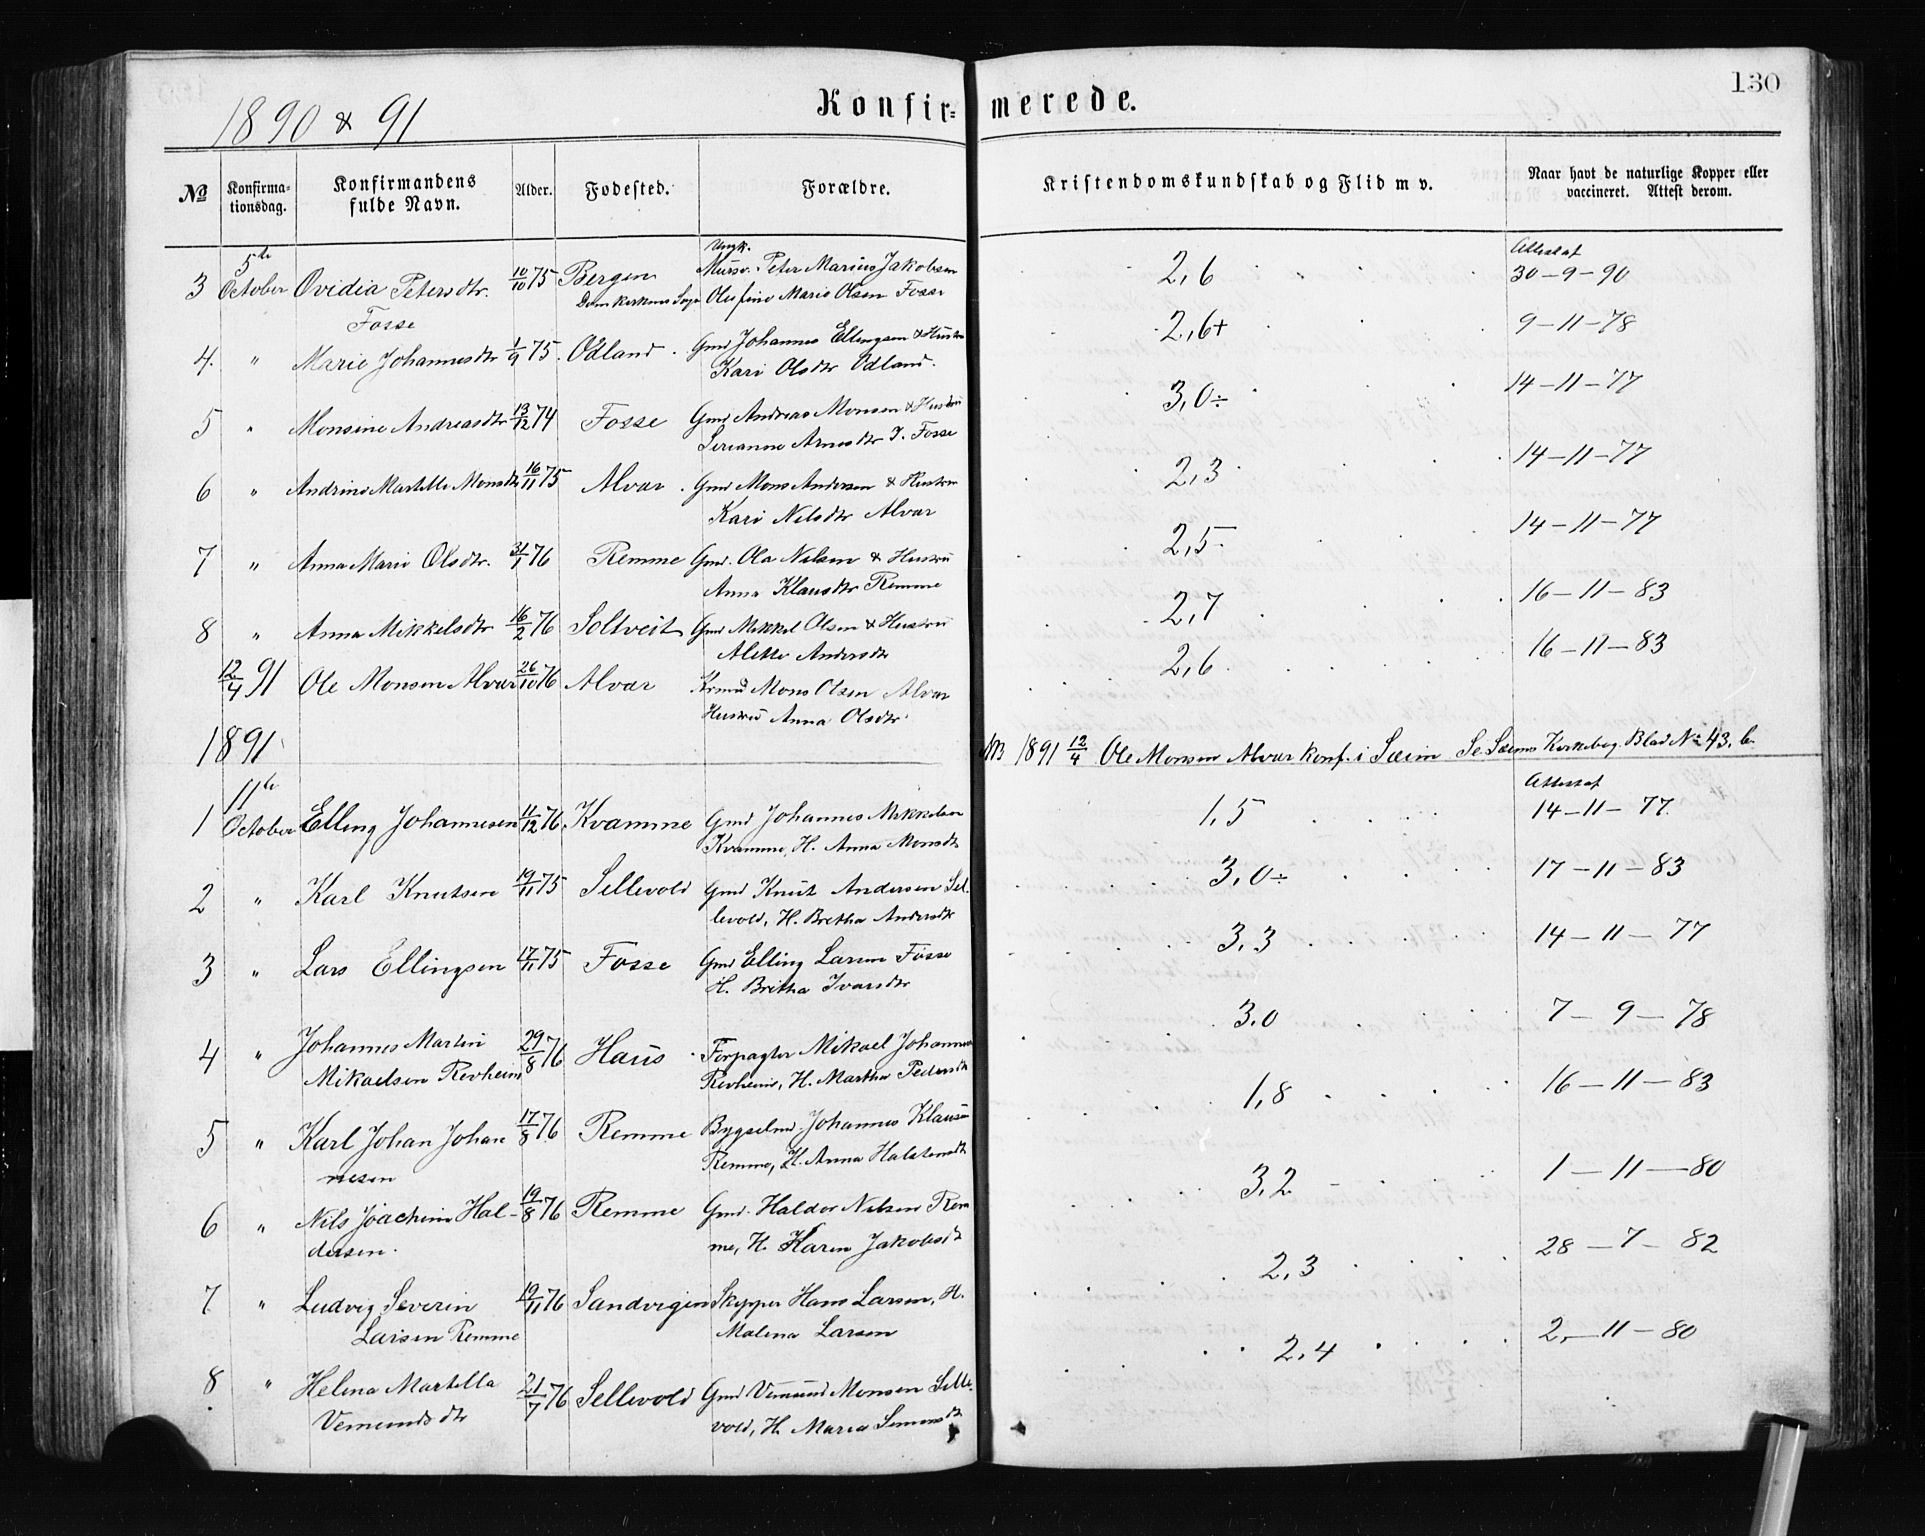 130
1890 & 91
Konfir= merede.
No Konfirma-tionsdag. Konfirmandens fulde Navn. Alder. Fødested. Forældre. Kristendomskundskab og Flid m v. Naar havt de naturlige Kopper eller vaccineret. Attest derom.
5te Ungk. Attestat
3 October Ovidia Petersdtr. 10/10 75 Bergen Peter Marius Jakobsen 2,6 30-9-90
Fosse Domkirkens Sogn Olufine Marie Olsen Fosse
4. " Marie Johannesdtr 1/9 75. Odland. Gmd Johannes Ellingsen & Hustru 2,6+ 9-11-78
Kari Olsdtr Odland.
5 " Monsine Andreasdtr 13/12 74 Fosse Gmd Andreas Monsen & Hustru 3,0÷ 14-11-77
Serianne Arnesdtr I. Fosse
6 " Andrine Martille Monsdtr 16/11 75 Alvar. Gmd Mons Andersen & Hustru 2,3 14-11-77
Kari Nilsdtr Alvar
7 " Anna Marie Olsdtr. 31/1 76 Remme Gmd. Ola Nilsen & Hustru 2,5 14-11-77
Anna Klausdtr Remme
8 " Anna Mikkelsdtr 16/2 76 Soltveit Gmd Mikkel Olsen & Hustru 2,7 16-11-83
Alette Andersdtr
12/4 91 Ole Monsen Alvar 26/10 76 Alvar Mons Olsen Alvar 2,6 16-11-83
Hustru Anna Olsdtr
1891 NB 1891 12/4 Ole Monsen Alvar konf. i Sæim Se Sæims Kirkebog Blad No 43. b.
11te Attestat
1 October Elling Johannesen 11/12 76. Kvamme Gmd Johannes Mikkelsen 1,5 14-11-77.
Kvamme, H. Anna Monsdtr
2 " Karl Knutsen 19/11 75 Sellevold Gmd Knut Andersen Sel- 3,0÷ 17-11-83
levold, H. Bretha Andersdtr
3 " Lars Ellingsen 17/11 75 Fosse Gmd Elling Larsen Fosse 3,3 14-11-77
H. Britha Ivarsdtr
4 " Johannes Martin 29/8 76 Haus Forpagter Mikael Johannesen 3,0 7-9-78
Mikaelsen Revheim Revheim, H. Martha Pedersdtr
5 " Karl Johan Johan 17/8 76 Remme Bygselmd. Johannes Klausen 1,8 16-11-83
nesen Remme, H. Anna Halstensdtr
6 " Nils Joachim Hal- 19/8 76 Remme Gmd. Haldor Nilsen Rem 3,2 1-11-80
dersen. me, H. Karen Jakobsdtr
7 " Ludvig Severin 19/11 76 Sandvigen Skipper Hans Larsen, H. 2,3 28-7-82
Larsen Remme Malena Larsen
8 " Helena Martella 21/7 76 Sellevold Gmd Vemund Monsen Selle- 2,4 2-11-80
Vemundsdtr vold, H. Maria Simonsdtr